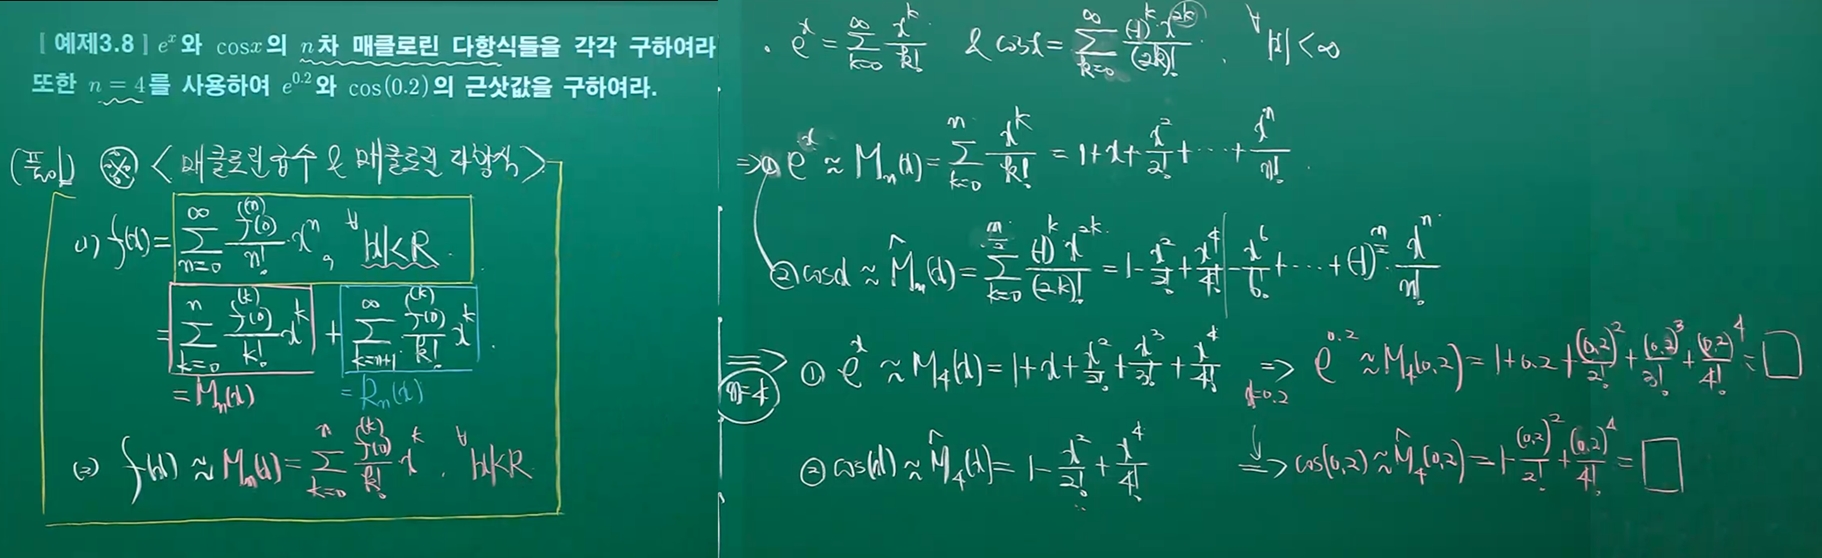 [예제3.8] e^x와 cosx의 n차 매클로린 다항식들을 각각 구하여라
또한 n = 4를 사용하여 e^{0.2}와 cos(0.2)의 근삿값을 구하여라.
(풀이) ※ <매클로린급수 & 매클로린 다항식>
(1) f(x) = \sum_{n=0}^{∞} \frac{f^{(n)}(0)}{n!}·x^n, ^∀|x|<R.
= \sum_{k=0}^{n} \frac{f^{(k)}(0)}{k!}x^k + \sum_{k=n+1}^{∞} \frac{f^{(k)}(0)}{k!}x^k.
= M_n(x) = R_n(x)
(2) f(x) ≈ M_n(x) = \sum_{k=0}^{n} \frac{f^{(k)}(0)}{k!}x^k, ^∀|x|<R
· e^x = \sum_{k=0}^{∞} \frac{x^k}{k!} & cosx = \sum_{k=0}^{∞} \frac{(-1)^k·x^{2k}}{(2k)!}, ^∀|x|<∞
⇒ ① e^x ≈ M_n(x) = \sum_{k=0}^{n} \frac{x^k}{k!} = 1+x+\frac{x^2}{2!}+···+\frac{x^n}{n!}.
② cosx ≈ \hat{M}_n(x) = \sum_{k=0}^{\frac{n}{2}} \frac{(-1)^k·x^{2k}}{(2k)!} = 1-\frac{x^2}{2!}+\frac{x^4}{4!}-\frac{x^6}{6!}+···+(-1)^{\frac{n}{2}}·\frac{x^n}{n!}
⇒ n=4 ① e^x ≈ M_4(x) = 1+x+\frac{x^2}{2!}+\frac{x^3}{3!}+\frac{x^4}{4!} ⇒ x=0.2 e^{0.2} ≈ M_4(0.2) = 1+0.2+\frac{(0.2)^2}{2!}+\frac{(0.2)^3}{3!}+\frac{(0.2)^4}{4!} = □
② cos(x) ≈ \hat{M}_4(x) = 1-\frac{x^2}{2!}+\frac{x^4}{4!} ⇒ cos(0.2) ≈ \hat{M}_4(0.2) = 1-\frac{(0.2)^2}{2!}+\frac{(0.2)^4}{4!} = □